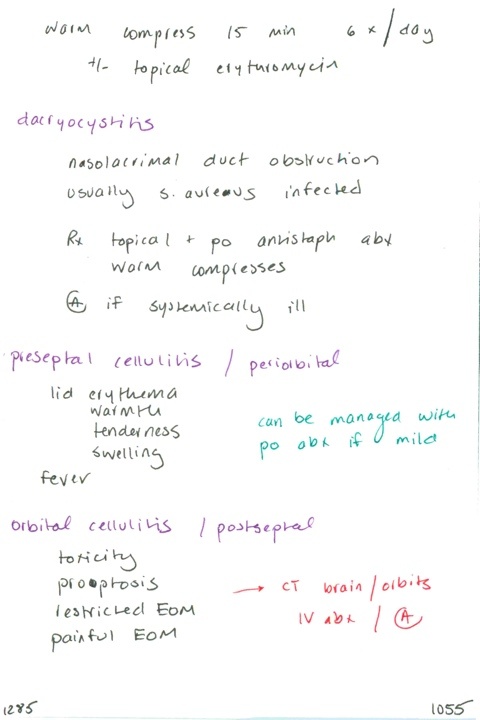 warm compress 15 min 6 x / day
+/- topical eryturomycin
dacryocystitis
nasolacrimal duct obstruction
usually s. aureous infected
Rx topical + po antistaph abx
warm compresses
Ⓐ if systemically ill
preseptal cellulitis / periorbital
lid erythema
warmth
tenderness
swelling
fever
can be managed with
po abx if mild
orbital cellulitis / postseptal
toxicity
prooptosis
restricted EOM
painful EOM
→ CT brain / orbits
IV abx / Ⓐ
1285
1055